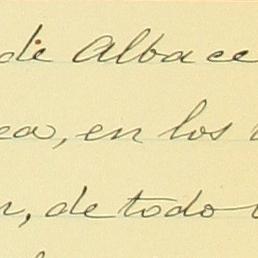 de Albace
ea, en los
n, de todo